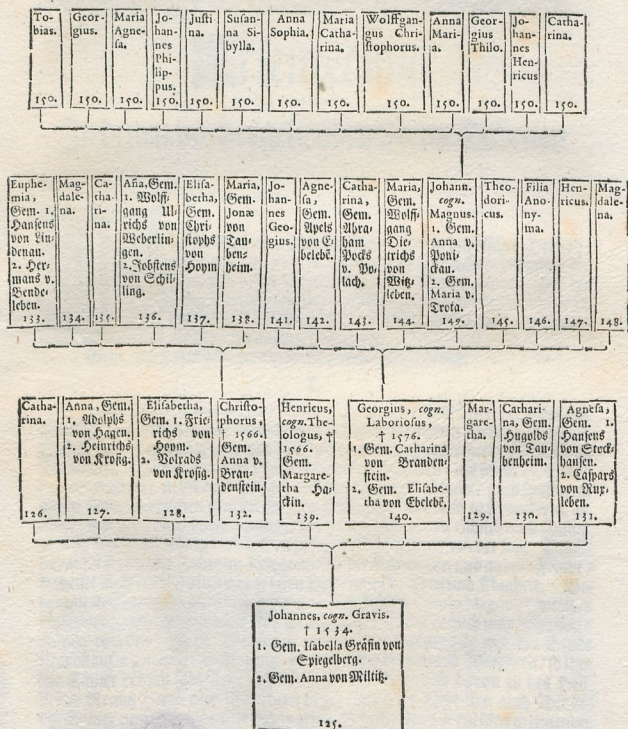 To-
bias.
150.
Geor-
gius.
150.
Maria
Agne-
sa.
150.
Jo-
han-
nes
Phi-
lip-
pus.
150.
Justi
na.
150.
Susan-
na Si-
bylla.
150.
Anna
Sophia.
150.
Maria
Catha-
rina.
150.
Wolffgan-
gus Chri-
stophorus.
150.
Anna
Mari-
a.
150.
Geor-
gius
Thilo.
150.
Jo-
han-
nes
Hen-
ricus
150.
Catha-
rina.
150.
Euphe-
mia,
Gem. 1.
Hansens
von Lin-
denau.
2. Her-
mans v.
Bende-
leben.
133.
Mag-
dale-
na.
134.
Ca-
tha-
ri-
na.
135.
Aña, Gem.
1. Wolff-
gang Ul-
richs von
Weberlin-
gen.
2. Jobstens
von Schil-
ling.
136.
Elisa-
betha,
Gem.
Chri-
stophs
von
Hoym
137.
Maria,
Gem.
Jonæ
von
Tau-
ben-
heim.
138.
Jo-
han-
nes
Geo-
gius.
141.
Agne-
sa,
Gem.
Apels
von E-
belebē.
142.
Catha-
rina,
Gem.
Abra-
ham
Pocks
v. Po-
lach.
143.
Maria,
Gem.
Wolff-
gang
Die-
trichs
von
Witz-
leben.
144.
Johann.
cogn.
Magnus.
1. Gem.
Anna v.
Poni-
ckau.
2. Gem.
Maria v.
Trota.
149.
Theo-
dori-
cus.
145.
Filia
Ano-
ny-
ma.
146.
Hen-
ricus.
147.
Mag-
dale-
na.
148.
Catha-
rina.
126.
Anna, Gem.
1. Adolphs
von Hagen.
2. Heinrichs
von Krosig.
127.
Elisabetha,
Gem. 1. Frie-
richs von
Hoym.
2. Volrads
von Krosig.
128.
Christo-
phorus,
† 1566.
Gem.
Anna v.
Bran-
denstein.
132.
Henricus,
cogn. The-
ologus, †
1566.
Gem.
Margare-
tha Ha-
ckin.
139.
Georgius, cogn.
Laboriosus,
† 1576.
1. Gem. Catharina
von Branden-
stein.
2. Gem. Elisabe-
tha von Ebelebē.
140.
Mar-
gare-
tha.
129.
Cathari-
na, Gem.
Hugolds
von Tau-
benheim.
130.
Agnesa,
Gem. 1.
Hansens
von Stock-
hausen.
2. Caspars
von Rux-
leben.
131.
Johannes, cogn. Gravis.
† 1534.
1. Gem. Isabella Gräfin von
Spiegelberg.
2. Gem. Anna von Miltitz.
125.